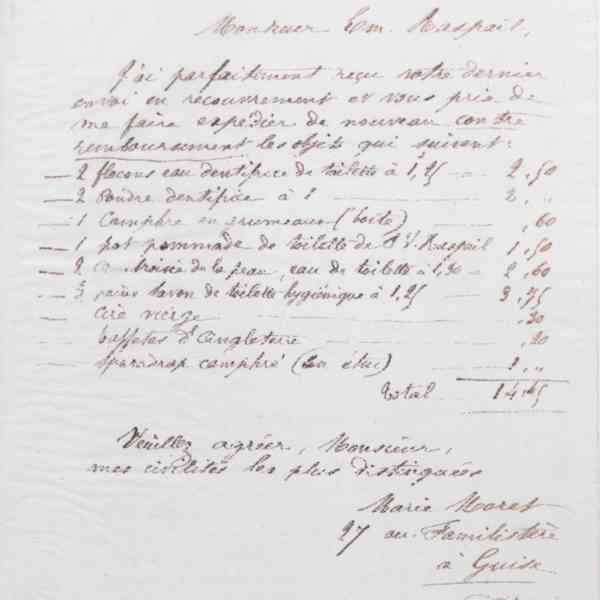 Monsieur Em. Raspail,
J'ai parfaitement reçu votre dernier
envoi en recouvrement et vous prie de
me faire expédier de nouveau contre
remboursement les objets qui suivent:
— 2 flacons eau dentifrice de toilette à 1,25 — 2,50
— 2 Poudre dentifrice à 1 — 2, "
— 1 Camphre en grumeaux (boîte) — ,60
— 1 pot pommade de toilette de F. V. Raspail 1,50
— 2 de la peau, eau de toilette à 1,30 — 2,60
— 3 pains savon de toilette hygiénique à 1,25 — 3,75
— cire vierge — ,30
— taffetas d'Angleterre — ,20
— sparadrap camphré (en étui) — 1, "
Total 14,45
Veuillez agréer, Monsieur,
mes civilités les plus distinguées
Marie Moret
27 au Familistère
à Guise